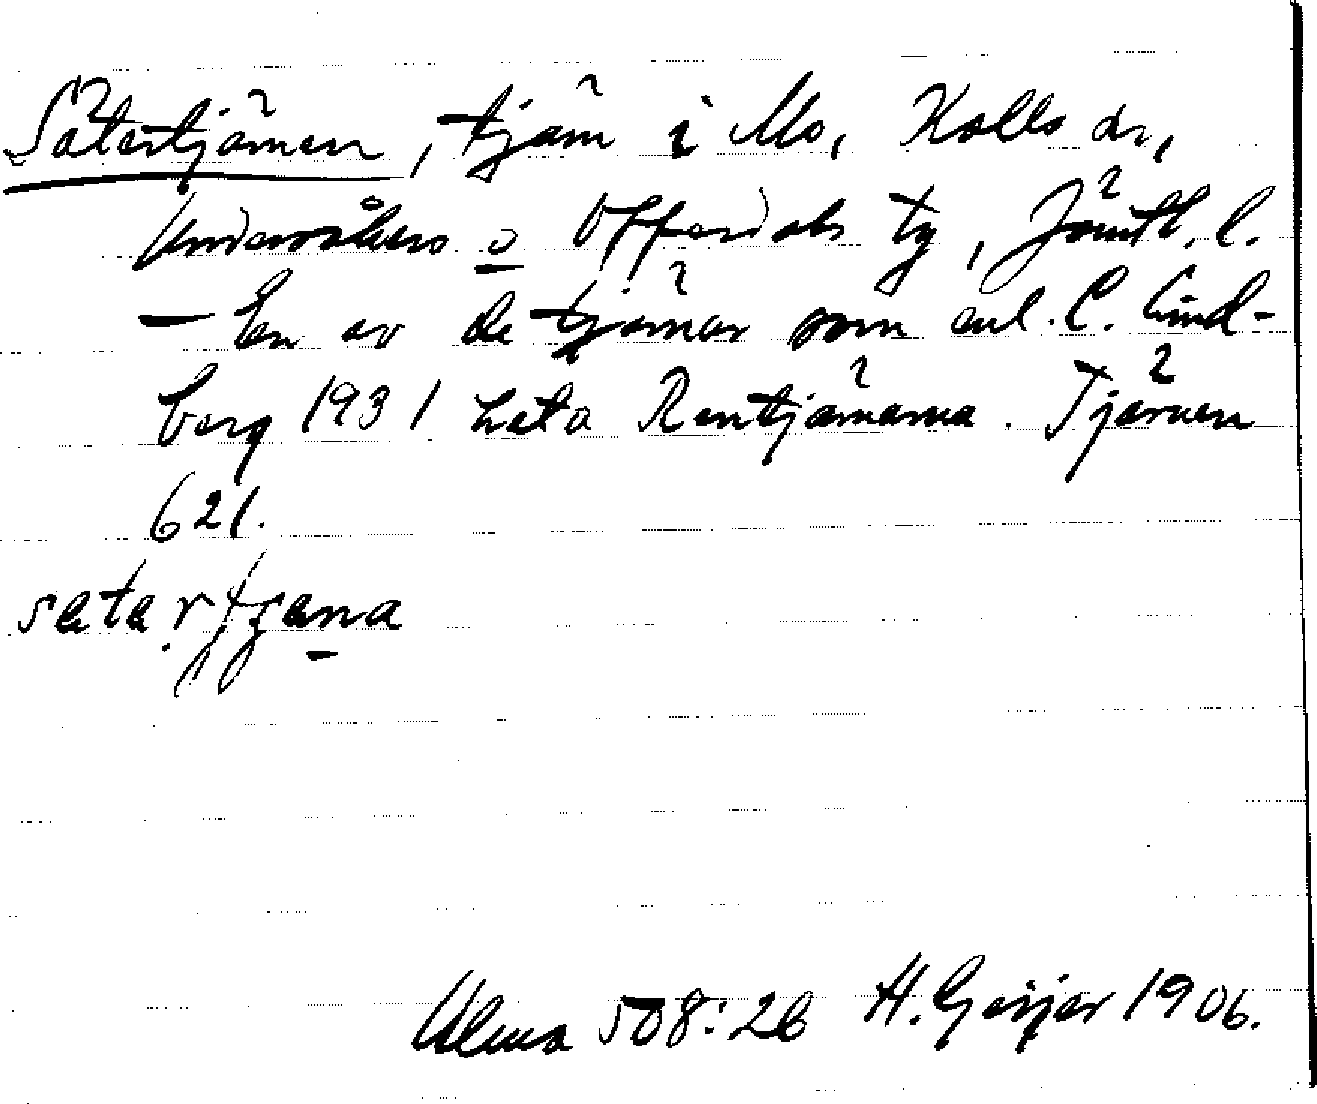 Sätertjärnen, tjärn i Mo, Kalls sn,
Undersåkers o Offerdals tg, Jämtl. l.
— En av de tjärnar som enl. C. Lind-
berg 1931 heta Rentjärnarna. Tjärnen
621.
Ulma 508:2b H. Geijer 1906.